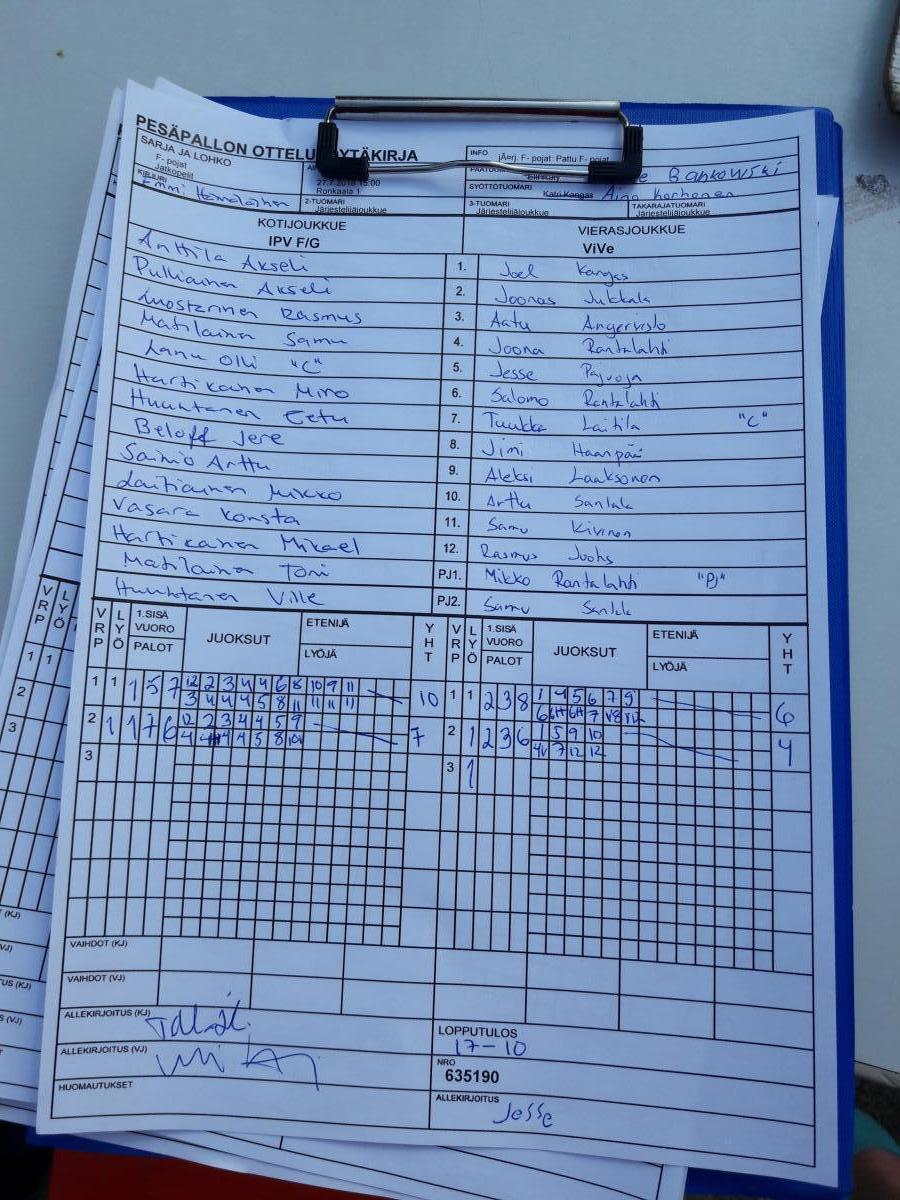 PESÄPALLON OTTELU YTÄKIRJA
SARJA JA LOHKO
F- pojat
Jatkopelit
27.7.2018 15:00
Ronkaala 1
INFO
jÄerj. F- pojat: Pattu F- pojat
KIRJURI
2-TUOMARI
Järjestelijäjoukkue
SYÖTTÖTUOMARI
Katri Kangas Aino Korhonen
3-TUOMARI
Järjestelijäjoukkue
TAKARAJATUOMARI
Järjestelijäjoukkue
KOTIJOUKKUE
IPV F/G
VIERASJOUKKUE
ViVe
Anttila Akseli 1. Joel Kangas
Pulliainen Akseli 2. Joonas Jukkala
Rasmus 3. Aatu Angervisto
Matilainen Samu 4. Joona Rantalahti
Lanu Olli "C" 5. Jesse Pajuoja
Hartikainen Miro 6. Salomo Rantalahti
Huuhtanen Eetu 7. Tuukka Laitila "C"
Beloff Jere 8. Jimi Haanpää
Sainio Arttu 9. Aleksi Laaksonen
Lautiainen Mikko 10. Arttu Santala
Vasara Konsta 11. Samu Kivinen
Hartikainen Mikael 12. Rasmus
Matilainen Toni PJ1. Mikko Rantalahti "PJ"
Huuhtanen Ville PJ2. Samu
VRP LYÖ 1.SISÄ VUORO PALOT JUOKSUT ETENIJÄ LYÖJÄ YHT VRP LYÖ 1.SISÄ VUORO PALOT JUOKSUT ETENIJÄ LYÖJÄ YHT
1 1 1 5 7 12 2 3 4 4 6 8 10 9 11 10 1 1 2 3 8 1 4 5 6 7 9 6
3 4 4 4 5 8 11 11 11 11
2 1 1 7 6 12 2 3 4 4 5 9 7 2 1 2 3 6 1 5 9 10 4
4V 7 12 12
3 3 1
VAIHDOT (KJ)
VAIHDOT (VJ)
ALLEKIRJOITUS (KJ)
ALLEKIRJOITUS (VJ)
HUOMAUTUKSET
LOPPUTULOS
17-10
NRO
635190
ALLEKIRJOITUS
Jesse